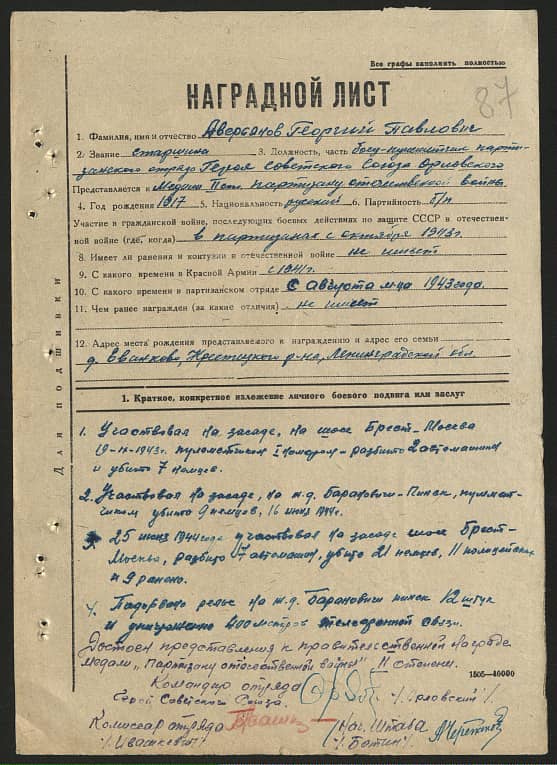 Все графы заполнять полностью
87
НАГРАДНОЙ ЛИСТ
1. Фамилия, имя и отчество Аверьянов Георгий Павлович
2. Звание старшина 3. Должность, часть боец-пулеметчик парти-
занского отряда Героя Советского Союза Орловского
Представляется к Медали Пст. партизану отечественной войны
4. Год рождения 1917 5. Национальность русский 6. Партийность б/п
Участие в гражданской войне, последующих боевых действиях по защите СССР в отечествен-
ной войне (где, когда) в партизанах с октября 1943г.
8. Имеет ли ранения и контузии в отечественной войне не имеет
9. С какого времени в Красной Армии с 1941г.
10. С какого времени в партизанском отряде с августа м-ца 1943 года.
11. Чем ранее награжден (за какие отличия) не имеет
12. Адрес места рождения представляемого к награждению и адрес его семьи
д. Крестецкого р-на, Ленинградской обл.
Для подшивки
1. Краткое, конкретное изложение личного боевого подвига или заслуг
1. Участвовал на засаде, на шоссе Брест-Москва
1943г. пулеметчиком I номером - разбито 2 автомашины
и убито 7 немцев.
2. Участвовал на засаде, на ж.д. Барановичи-Пинск, пулемет-
чиком убито 9 немцев, 16 1944г.
25 июня 1944 года участвовал на засаде шоссе Брест-
Москва, разбито 17 автомашин, убито 21 немцев, 11 полицейских
и 9 ранено.
4. Подорвано рельс на ж.д. Барановичи Пинск 12 штук
и уничтожено 400 метров телефонной связи.
Достоен представления к правительственной награде
медали "Партизану отечественной войны" II степени.
1505-40000
Командир отряда
Герой Советского Союза. /Орловский/
Комиссар отряда Нач. Штаба
/Ивашкевич/